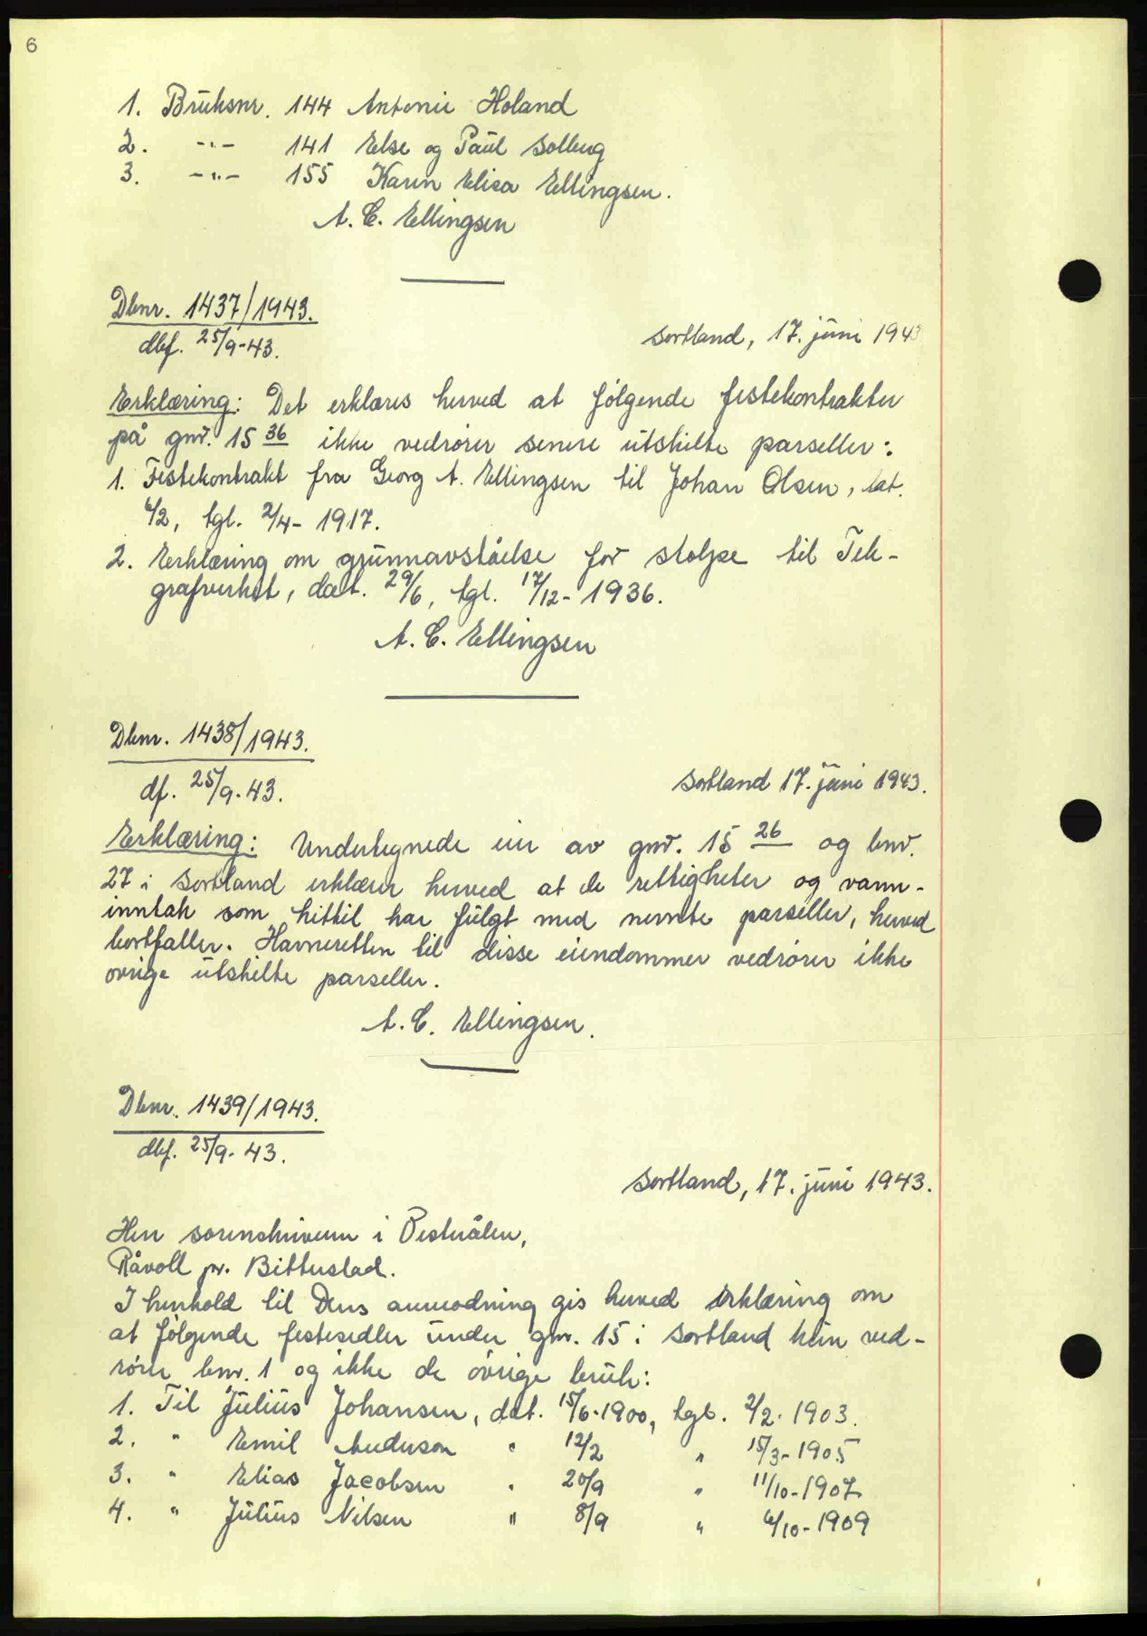 6
1. Bruksnr. 144 Antonie Holand
2. -"- 141 Else og Paul Solleng
3. -"- 155 Karin Elisa Ellingsen.
A. C. Ellingsen
Dbnr. 1437/1943.
dbf. 25/9-43.
Sortland, 17. juni 1943
Erklæring: Det erklæres herved at følgende festekontrakter
på gnr. 15 36 ikke vedrører senere utskilte parseller:
1. Festekontrakt fra Georg A. Ellingsen til Johan Olsen, dat.
6/2, tgl. 2/4-1917.
2. Erklæring om grunnavståelse for stolpe til Tele-
grafverket, dat. 29/6, tgl. 17/12-1936.
A. C. Ellingsen
Dbnr. 1438/1943.
df. 25/9-43.
Sortland 17. juni 1943.
Erklæring: Undertegnede eier av gnr. 15 26 og bnr.
27 i Sortland erklærer herved at de rettigheter og vann-
inntak som hittil har fulgt med nevnte parseller, herved
bortfaller. Havneretten til disse eiendommer vedrører ikke
øvrige utskilte parseller.
A. C. Ellingsen.
Dbnr. 1439/1943.
dbf. 25/9-43.
Sortland, 17. juni 1943.
Herr sorenskriveren i Vesterålen,
Råvoll pr. Bitterstad.
I henhold til Deres anmodning gis herved erklæring om
at følgende festesedler under gnr. 15 i Sortland kun ved-
rører bnr. 1 og ikke de øvrige bruk:
1. Til Julius Johansen, dat. 15/6-1900, tgl. 2/2-1903.
2. " Emil Anderson " 12/2 " 15/3-1905
3. " Elias Jacobsen " 20/9 " 11/10-1907
4. " Julius Nilsen " 8/9 " 6/10-1909